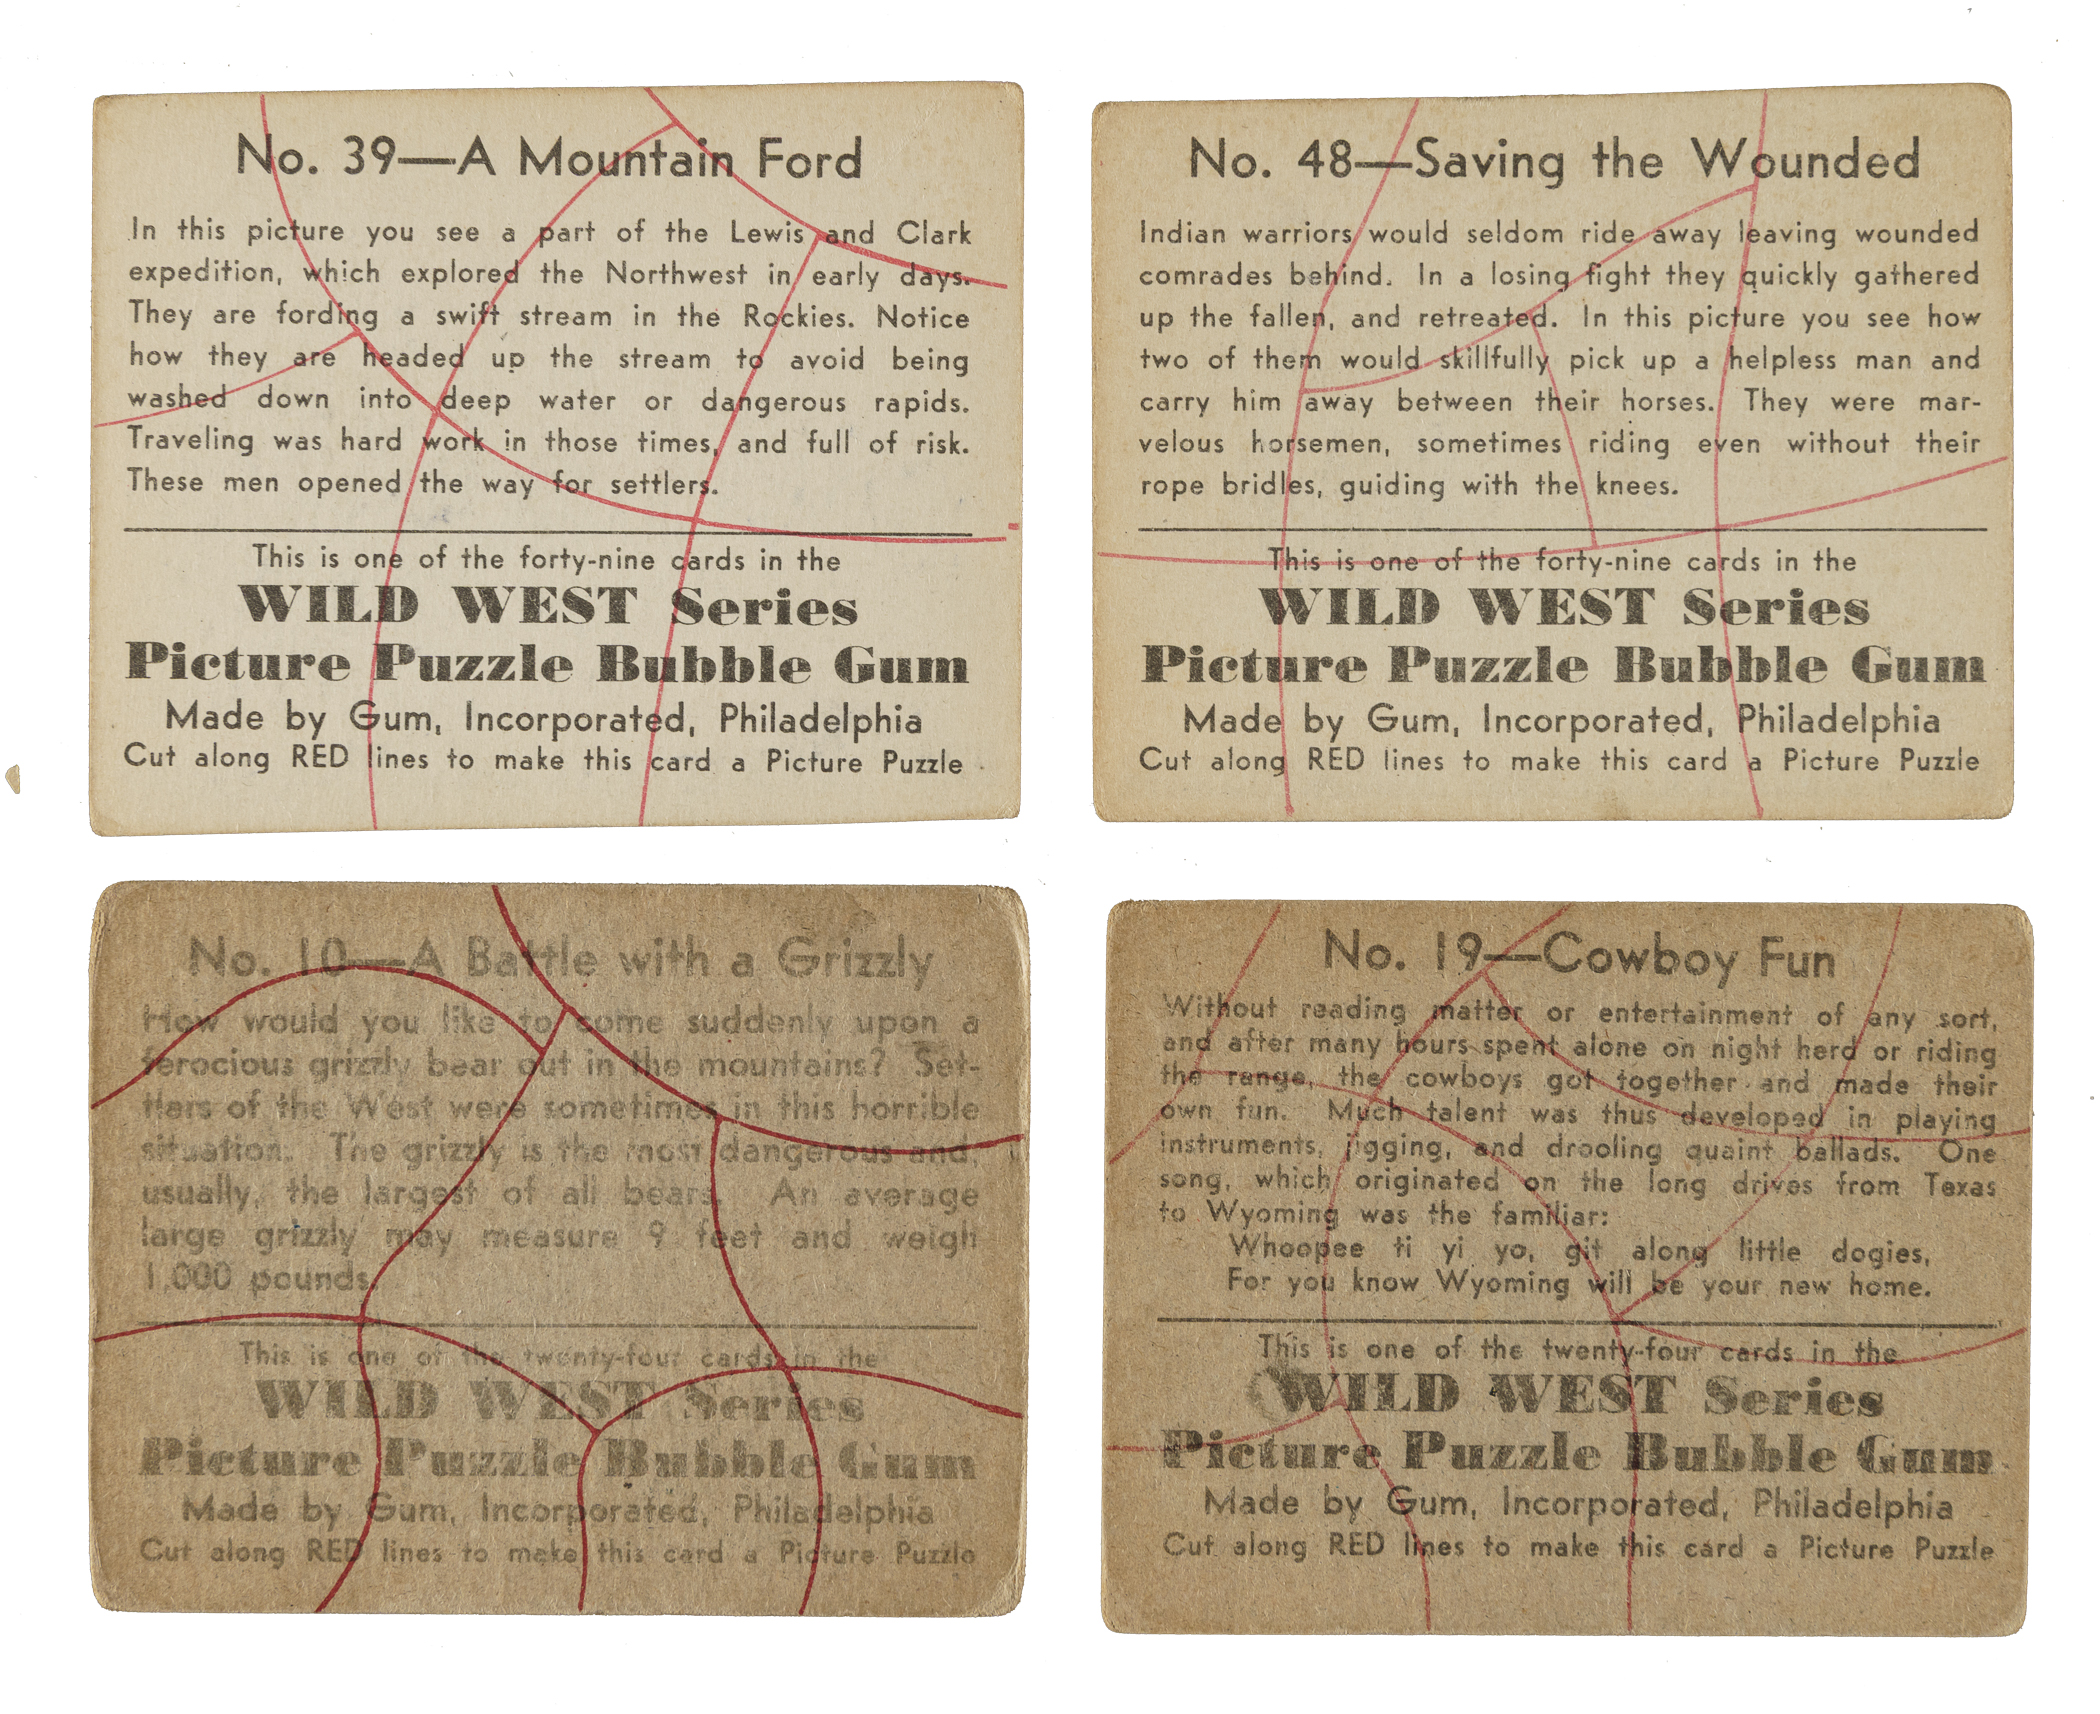 No. 39—A Mountain Ford
In this picture you see a part of the Lewis and Clark
expedition, which explored the Northwest in early days.
They are fording a swift stream in the Rockies. Notice
how they are headed up the stream to avoid being
washed down into deep water or dangerous rapids.
Traveling was hard work in those times, and full of risk.
These men opened the way for settlers.
This is one of the forty-nine cards in the
WILD WEST Series
Picture Puzzle Bubble Gum
Made by Gum, Incorporated, Philadelphia
Cut along RED lines to make this card a Picture Puzzle
No. 48—Saving the Wounded
Indian warriors would seldom ride away leaving wounded
comrades behind. In a losing fight they quickly gathered
up the fallen, and retreated. In this picture you see how
two of them would skillfully pick up a helpless man and
carry him away between their horses. They were mar-
velous horsemen, sometimes riding even without their
rope bridles, guiding with the knees.
This is one of the forty-nine cards in the
WILD WEST Series
Picture Puzzle Bubble Gum
Made by Gum, Incorporated, Philadelphia
Cut along RED lines to make this card a Picture Puzzle
No. 10—A Battle with a Grizzly
How would you like to come suddenly upon a
ferocious grizzly bear out in the mountains? Set-
tlers of the West were sometimes in this horrible
situation. The grizzly is the most dangerous and,
usually, the largest of all bears. An average
large grizzly may measure 9 feet and weigh
1,000 pounds.
This is one of the twenty-four cards in the
WILD WEST Series
Picture Puzzle Bubble Gum
Made by Gum, Incorporated, Philadelphia
Cut along RED lines to make this card a Picture Puzzle
No. 19—Cowboy Fun
Without reading matter or entertainment of any sort,
and after many hours spent alone on night herd or riding
the range, the cowboys got together and made their
own fun. Much talent was thus developed in playing
instruments, jigging, and drooling quaint ballads. One
song, which originated on the long drives from Texas
to Wyoming was the familiar:
Whoopee ti yi yo, git along little dogies,
For you know Wyoming will be your new home.
This is one of the twenty-four cards in the
WILD WEST Series
Picture Puzzle Bubble Gum
Made by Gum, Incorporated, Philadelphia
Cut along RED lines to make this card a Picture Puzzle